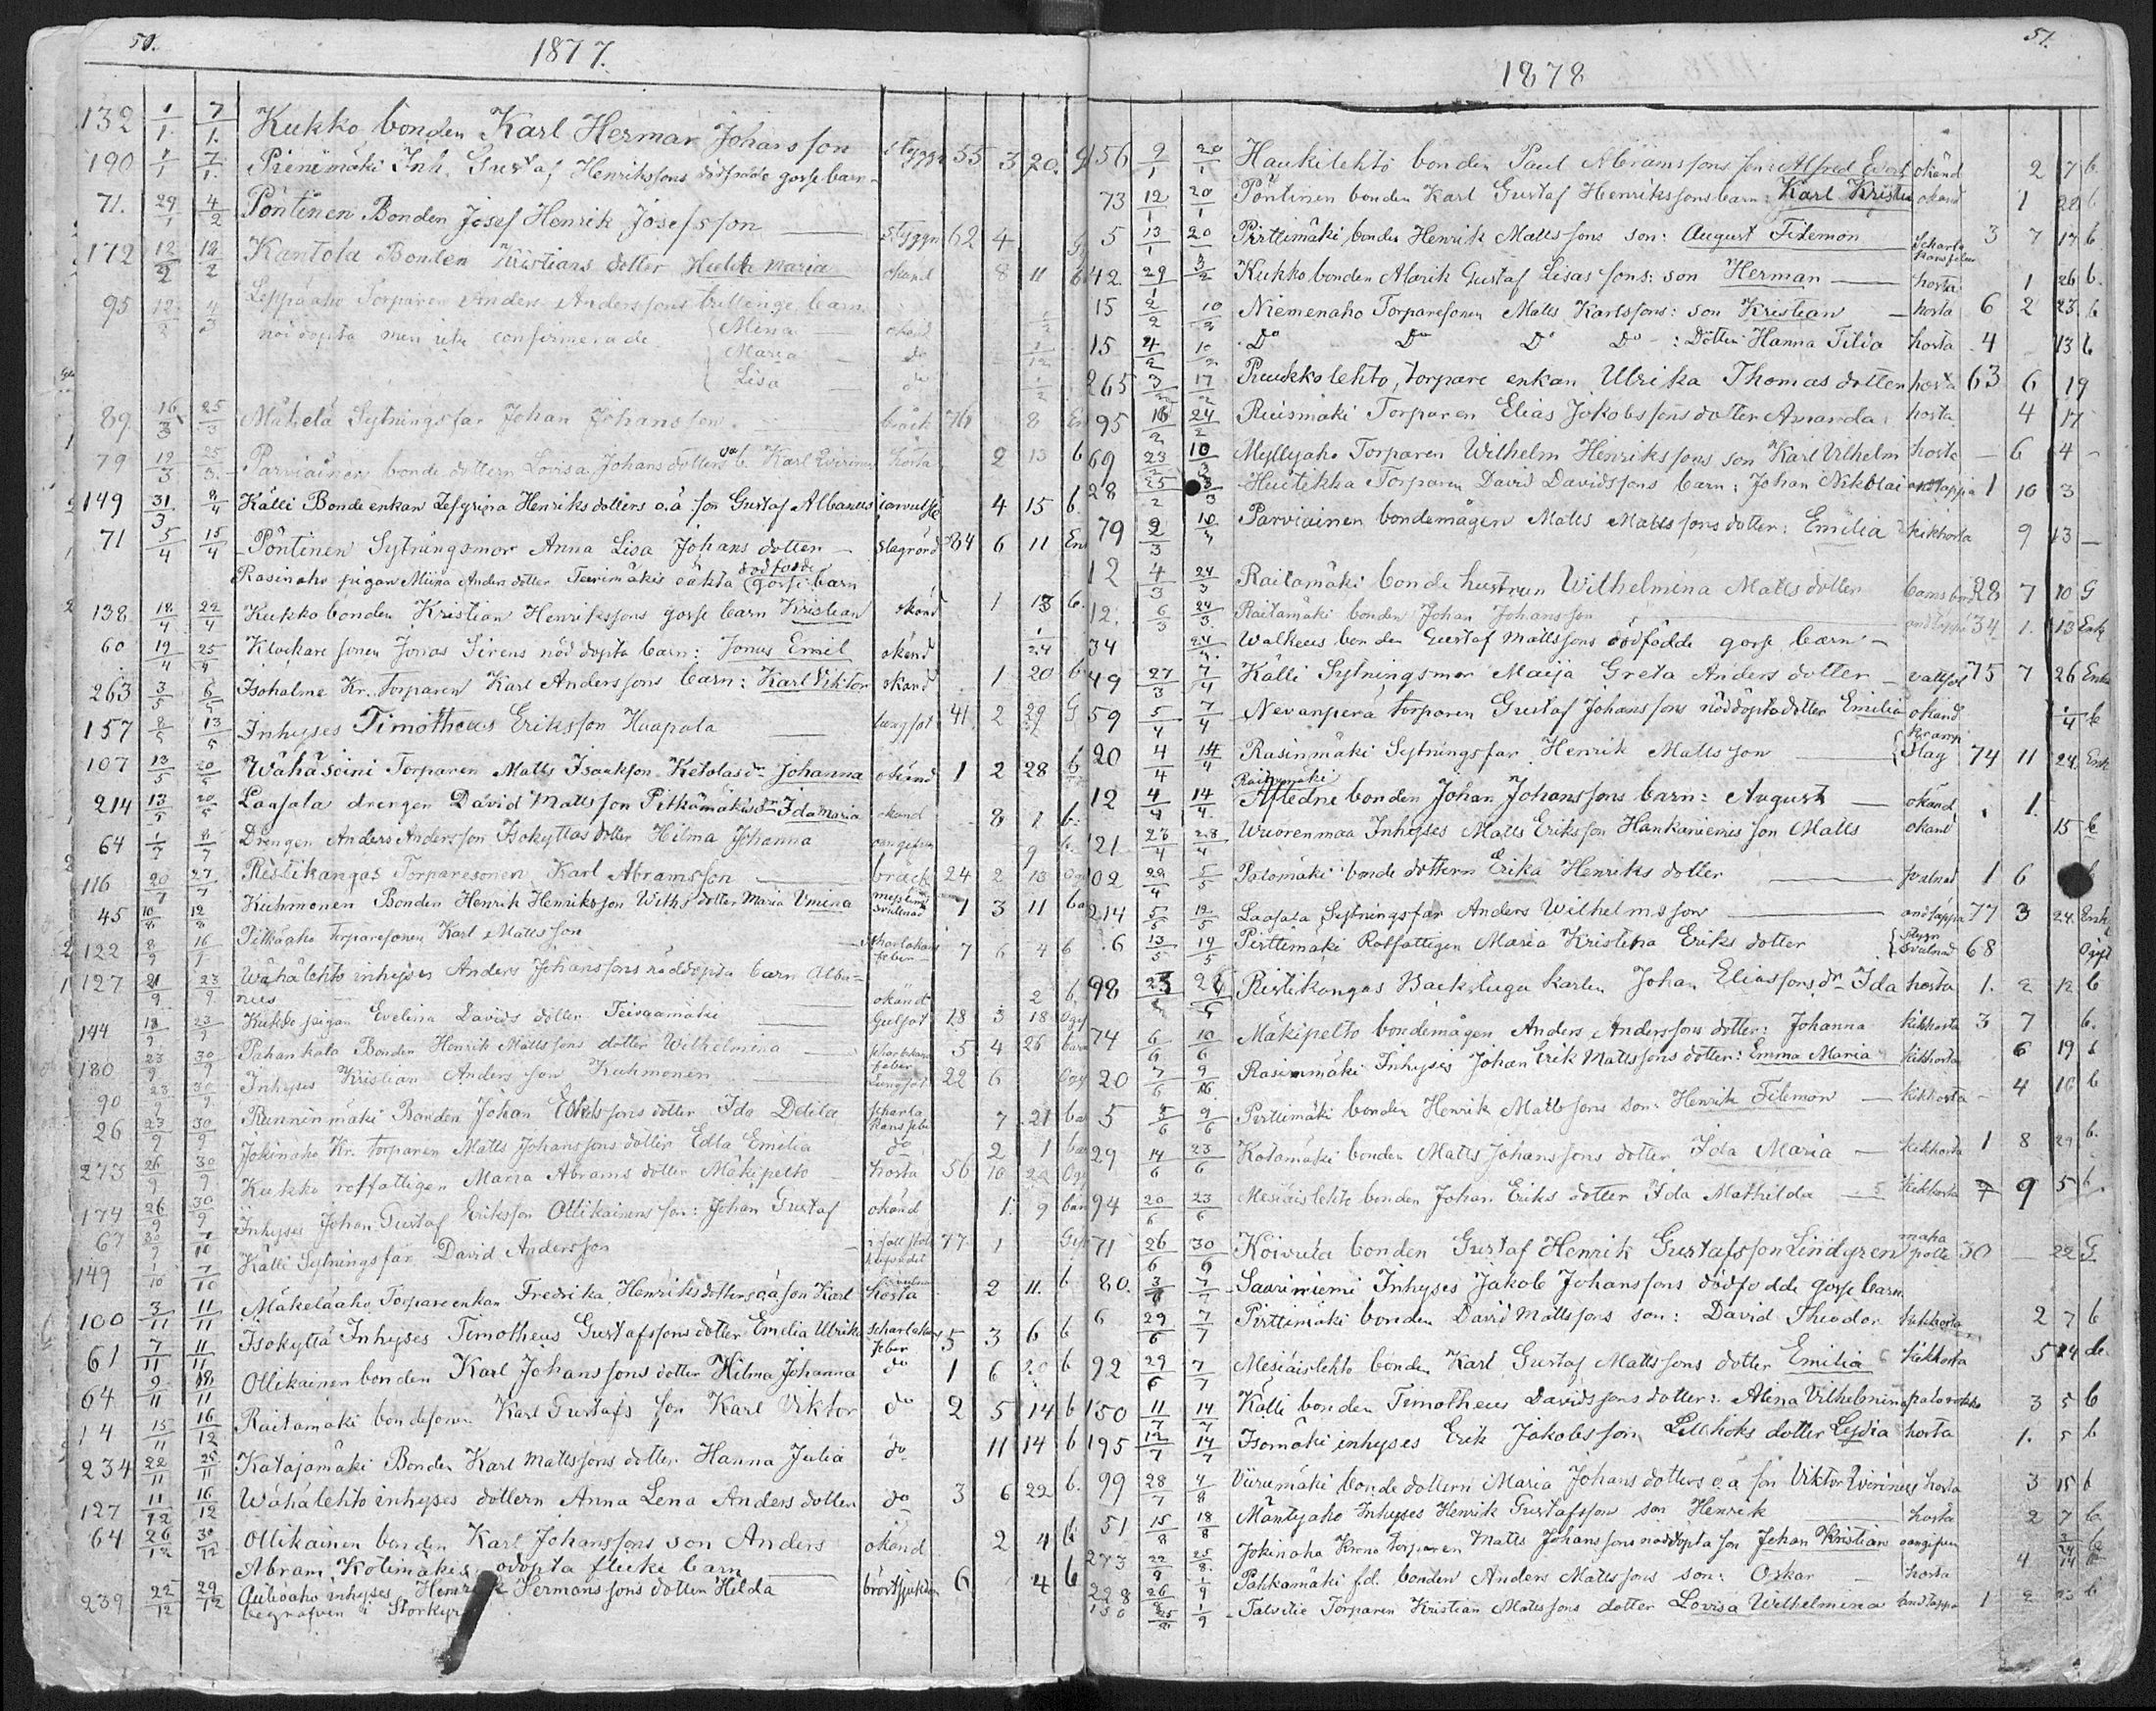 50.
1877.
132 1/1. 7/1. Kukko bonden Karl Herman Johansson styggn 55 3 20. G
190 1/1 7/1. Pienimäki Inh. Gustaf Henrikssons dödfödde gosse barn
71. 29/1 4/2 Pöntinen Bonden Josef Henrik Josefsson styggn 62 4 G
172 12/2 18/2 Kantola Bonden Kristians dotter Hulda Maria okänd 8 11 b
95 12/2 4/3 Leppäaho Torparen Anders Anderssons trillinge barn
nöddöpta men icke confirmerade Mina okänd 1/2
Maria do 1/12
Lisa do 1/2
89 16/3 25/3 Mäkelä Sytningsfar Johan Johansson bråck 76 8 En
79 19/3 25/3. Parviainen bonde dottern Lovisa Johans dotters oä b. Karl Qvirinus hosta 2 13 b
149 31./3 8/4 Källi Bonde enkan Zefyrina Henriks dotters o.ä son Gustaf Albanus convulsio 4 15 b.
71 5/4 15/4 Pöntinen Sytningsmor Anna Lisa Johans dotter slagrörd 84 6 11 En
Rasinaho pigan Miina Anders dotter Teerimäkis oäkta dödfödde gosse barn
138 18/4 22/4 Kukko bonden Kristian Henrikssons gosse barn Kristian okänd 1 13 b.
60 19/4 25/4 Klockare sonen Jonas Sirens nöddöpta barn: Jonas Emil okänd 1/24
263 3/5 6/5 Isohalme Kr. torparen Karl Anderssons barn: Karl Viktor okänd 1 20 b
157 8/5 13/5 Inhyses Timotheus Eriksson Haapala lungsot 41. 2 29 G
107 13/5 20/5 Wähäsoini Torparen Matts Isaksson Ketolas dr Johanna okänd 1 2 28 b
214 13/5 20/5 Laasala drengen David Mattsson Pitkämäkis dr Ida Maria okänd 8 1 b.
64 1/7 8/7 Drengen Anders Andersson Isokyttas dotter Hilma Johanna oangifven 9 b.
116 20/7 27/7 Ristikangas Torparesonen Karl Abramsson bråck 24 2 13 Og
45 10/8 12/8 Kuhmonen Bonden Henrik Henriksson Wilh.s dotter Maria Vmina messling svullnad 1 3 11 ba
122 8/9 16/9 Pitkäaho Torparesonen Karl Mattsson scharlakans feber 7 6 4 b
127 21/9. 23/9 Wähälehto inhyses Anders Johanssons nöddöpta barn Albi=
nus okändt 2 b.
144 18/9 23/9 Kukko pigan Evelina Davids dotter Teivaamäki Gulsot 18 3 18 Ogif
180 23/9 30/9 Pahankala Bonden Henrik Mattssons dotter Wilhelmina scharlakans feber 5 4 26 barn
90 23/9 30/9 Inhyses Kristian Andersson Kuhmonen Lungsot 22 6 Ogg
26 23/9 30/9 Runninmäki Bonden Johan Eliassons dotter Ida Delila scharlakansfebe 7 21 ba
273 26/9 30/9 Jokinaho Kr. torparen Matts Johanssons dotter Edla Emilia do 2 1 bar
Kukko rotfattigen Maria Abrams dotter Mäkipelto hosta 56 10 22 Og
174 26/9 30/9 Inhyses Johan Gustaf Eriksson Ollikainens son: Johan Gustaf okänd 1. 9 bar
67 30/9 7/10 Källi Sytningsfar David Andersson 77 1 Gif
149 1/10 7/10 Mäkeläaho Torpareenkan Fredrika Henriksdotters oä son Karl hosta 2 11. b
100 3/11 11/11 Isokyttä Inhyses Timotheus Gustafssons dotter Emelia Ulrika scharlakans feber 5 3 6 b
61 7/11 11/11 Ollikainen bonden Karl Johanssons dotter Hilma Johanna do 1 6 20 b
64 9/11 18/11 Raitamäki bondesonen Karl Gustafs son Karl Viktor do 2 5 14 b
14 15/11 16/12 Katajamäki Bonden Karl Mattssons dotter Hanna Julia do 11 14 b
234 22/11 25/11 Wähälehto inhyses dottern Anna Lena Anders dotter do 3 6 22 b.
127 11/12 16/12
64 26/12 30/12 Ollikainen bonden Karl Johanssons son Anders okänd 2 4 b
Abram Kotimäkis odöpta flicke barn
239 22/12 29/12 inhyses Henrik Hermanssons dotter Hilda bröstsjukdom 6 4 b
begrafven i Storkyro
51.
1878
156 9/1 20/1 Haukilehto bonden Paul Abramssons son: Alfred Evert okänd 2 7 b.
73 12/1 20/1 Pöntinen bonden Karl Gustaf Henrikssons barn: Karl Kristian okänd 1 28 b
5 13/1 20 Pirttimäki bonden Henrik Mattssons son: August Filemon Scharlakansfeber 3 7 17 b.
42. 29/1 3/2 Kukko bonden Alarik Gustaf Lisas sons: son Herman hosta 1 26 b.
15 2/2 10/2 Niemenaho Torparesonen Matts Karlssons: son Kristian hosta 6 2 23. b
15 4/2 10/2 Do Do Do Do : Dotter Hanna Tilia hosta 4 13 b
265 3/2 17/2 Puukkolehto, torpare enkan Ulrika Thomas dotter hosta 63 6 19
95 16/2 24/2 Ruismäki Torparen Elias Jakobssons dotter Amanda hosta 4 17
69 23/2 10/3 Myllyaho Torparen Wilhelm Henrikssons son Karl Vilhelm hosta 6 4
28 25/2 3/3 Huitikka Torparen David Davidssons barn: Johan Nikolai andtäppa 1 10 3
79 2/3 10/3 Parviainen bondemågen Matts Mattssons dotter: Emelia kikhosta 9 13
12 4/3 24/3 Raitamäki bonde hustrun Wilhelmina Matts dotter barnsbörd 28 7 10 G
12. 6/3 24/3. Raitamäki bonden Johan Johansson andtäppa 34 1. 13 Enk
34 24/3. Walkeus bonden Gustaf Mattssons dödfödde gosse barn
49 27/3 7/4 Källi Sytningsmor Maija Greta Anders dotter vattsot 75 7 26 Enka
59 5/4 7/4 Nevanperä torparen Gustaf Johanssons nöddöpta dotter Emilia okänd 1/4 b
20 4/4 14/4 Rasinmäki Sytningsfar Henrik Mattsson kramp slag 74 11 24. Enk
Raitamäki
12 4/4 14/4. Afledne bonden Johan Johanssons barn: August okänd 1.
121 23/4 28/4 Wuorenmaa Inhyses Matts Eriksson Hankaniemis son Matts okänd 15 b
102 29/4 5/5 Palomäki bonde dottern Erika Henriks dotter svulnad 1 6
214 5/5 12/5 Laasala Sytningsfar Anders Wilhelmsson andtäppa 77 3 24. Enk
6 13/5 19/5 Pirttimäki Rotfattigen Maria Kristina Eriks dotter styggn svulnad 68 Ogift
98 23/5 26/5 Ristikangas Backstuga karlen Johan Eliassons dr Ida hosta 1. 2 12 b
74 6/6 10/6 Mäkipelto bondemågen Anders Anderssons dotter: Johanna kikhosta 3 7 b.
20 7/6 9/6 Rasinmäki Inhyses Johan Erik Mattssons dotter: Emma Maria kikhosta 6 19 b
5 8/6 9/6 Pirttimäki bonden Henrik Mattssons son: Henrik Filemon kikhosta 4 16 b
29 14/6 23/6 Kotamäki bonden Matts Johanssons dotter Ida Maria kikhosta 1 8 29 b.
94 20/6 23/6 Mesiäislehto bonden Johan Eriks dotter Ida Mathilda kikhosta 7 9 5 b.
71 26/6 30/6 Koivula bonden Gustaf Henrik Gustafsson Lindgren maha polte 30 22 G
80. 3/7 7 Saariniemi Inhyses Jakob Johanssons dödfödde gosse barn
6 29/6 7/7 Pirttimäki bonden David Mattssons son: David Theodor kikhosta 2 7 b
92 29/6 7/7 Mesiäislehto bonden Karl Gustaf Mattssons dotter Emilia kikhosta 5 14 de
150 11/7 14/7 Källi bonden Timotheus Davidssons dotter: Alina Vilhelmina 3 5 b
195 12/7 14/7 Isomäki inhyses Erik Jakobsson Lillhöks dotter Lydia hosta 1. 5 b
99 28/7 4/8 Viirumäki bonde dottern Maria Johans dotters o.ä son Viktor Qvirinus hosta 3 15 b
51 15/8 18/8 Mäntyaho Inhyses Henrik Gustafsson son Henrik hosta 2 7 b.
273 22/8 25/8. Jokinaho Krono torparen Matts Johanssons nöddöpta son Johan Kristian oangifven
228 26/8 1/9 Pahkamäki f.d. bonden Anders Mattssons son: Oskar hosta 4 14
150 25/8 1/9 Talvitie Torparen Kristian Mattssons dotter Lovisa Wilhelmina andtäppa 1 2 23 b